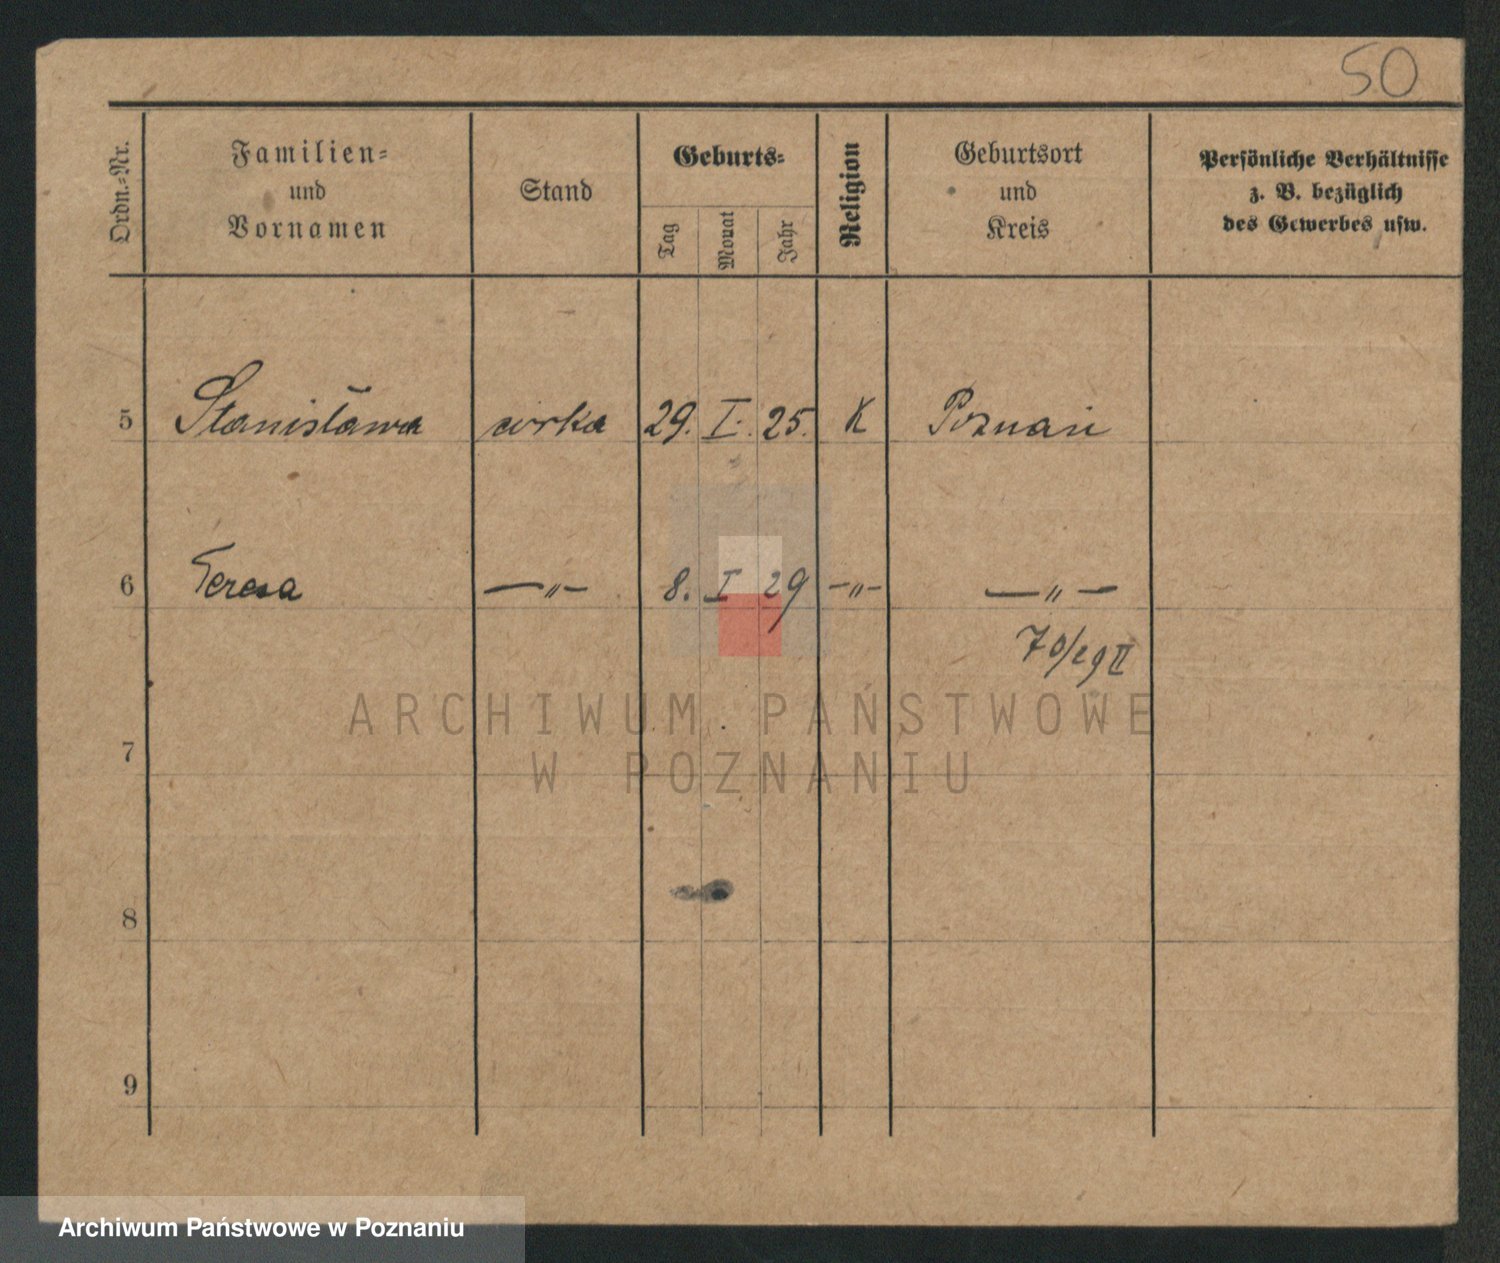 50
Ordn.-Nr.
Familien-
und
Vornamen
Stand
Geburts-
Tag
Monat
Jahr
Religion
Geburtsort
und
Kreis
Persönliche Verhältnisse
z. B. bezüglich
des Gewerbes usw.
5 Stanisława córka 29. I. 25. K Poznań
6 Teresa —„— 8. I 29 —„— —„—
70/29 II
ARCHIWUM PAŃSTWOWE
W POZNANIU
7
8
9
Archiwum Państwowe w Poznaniu